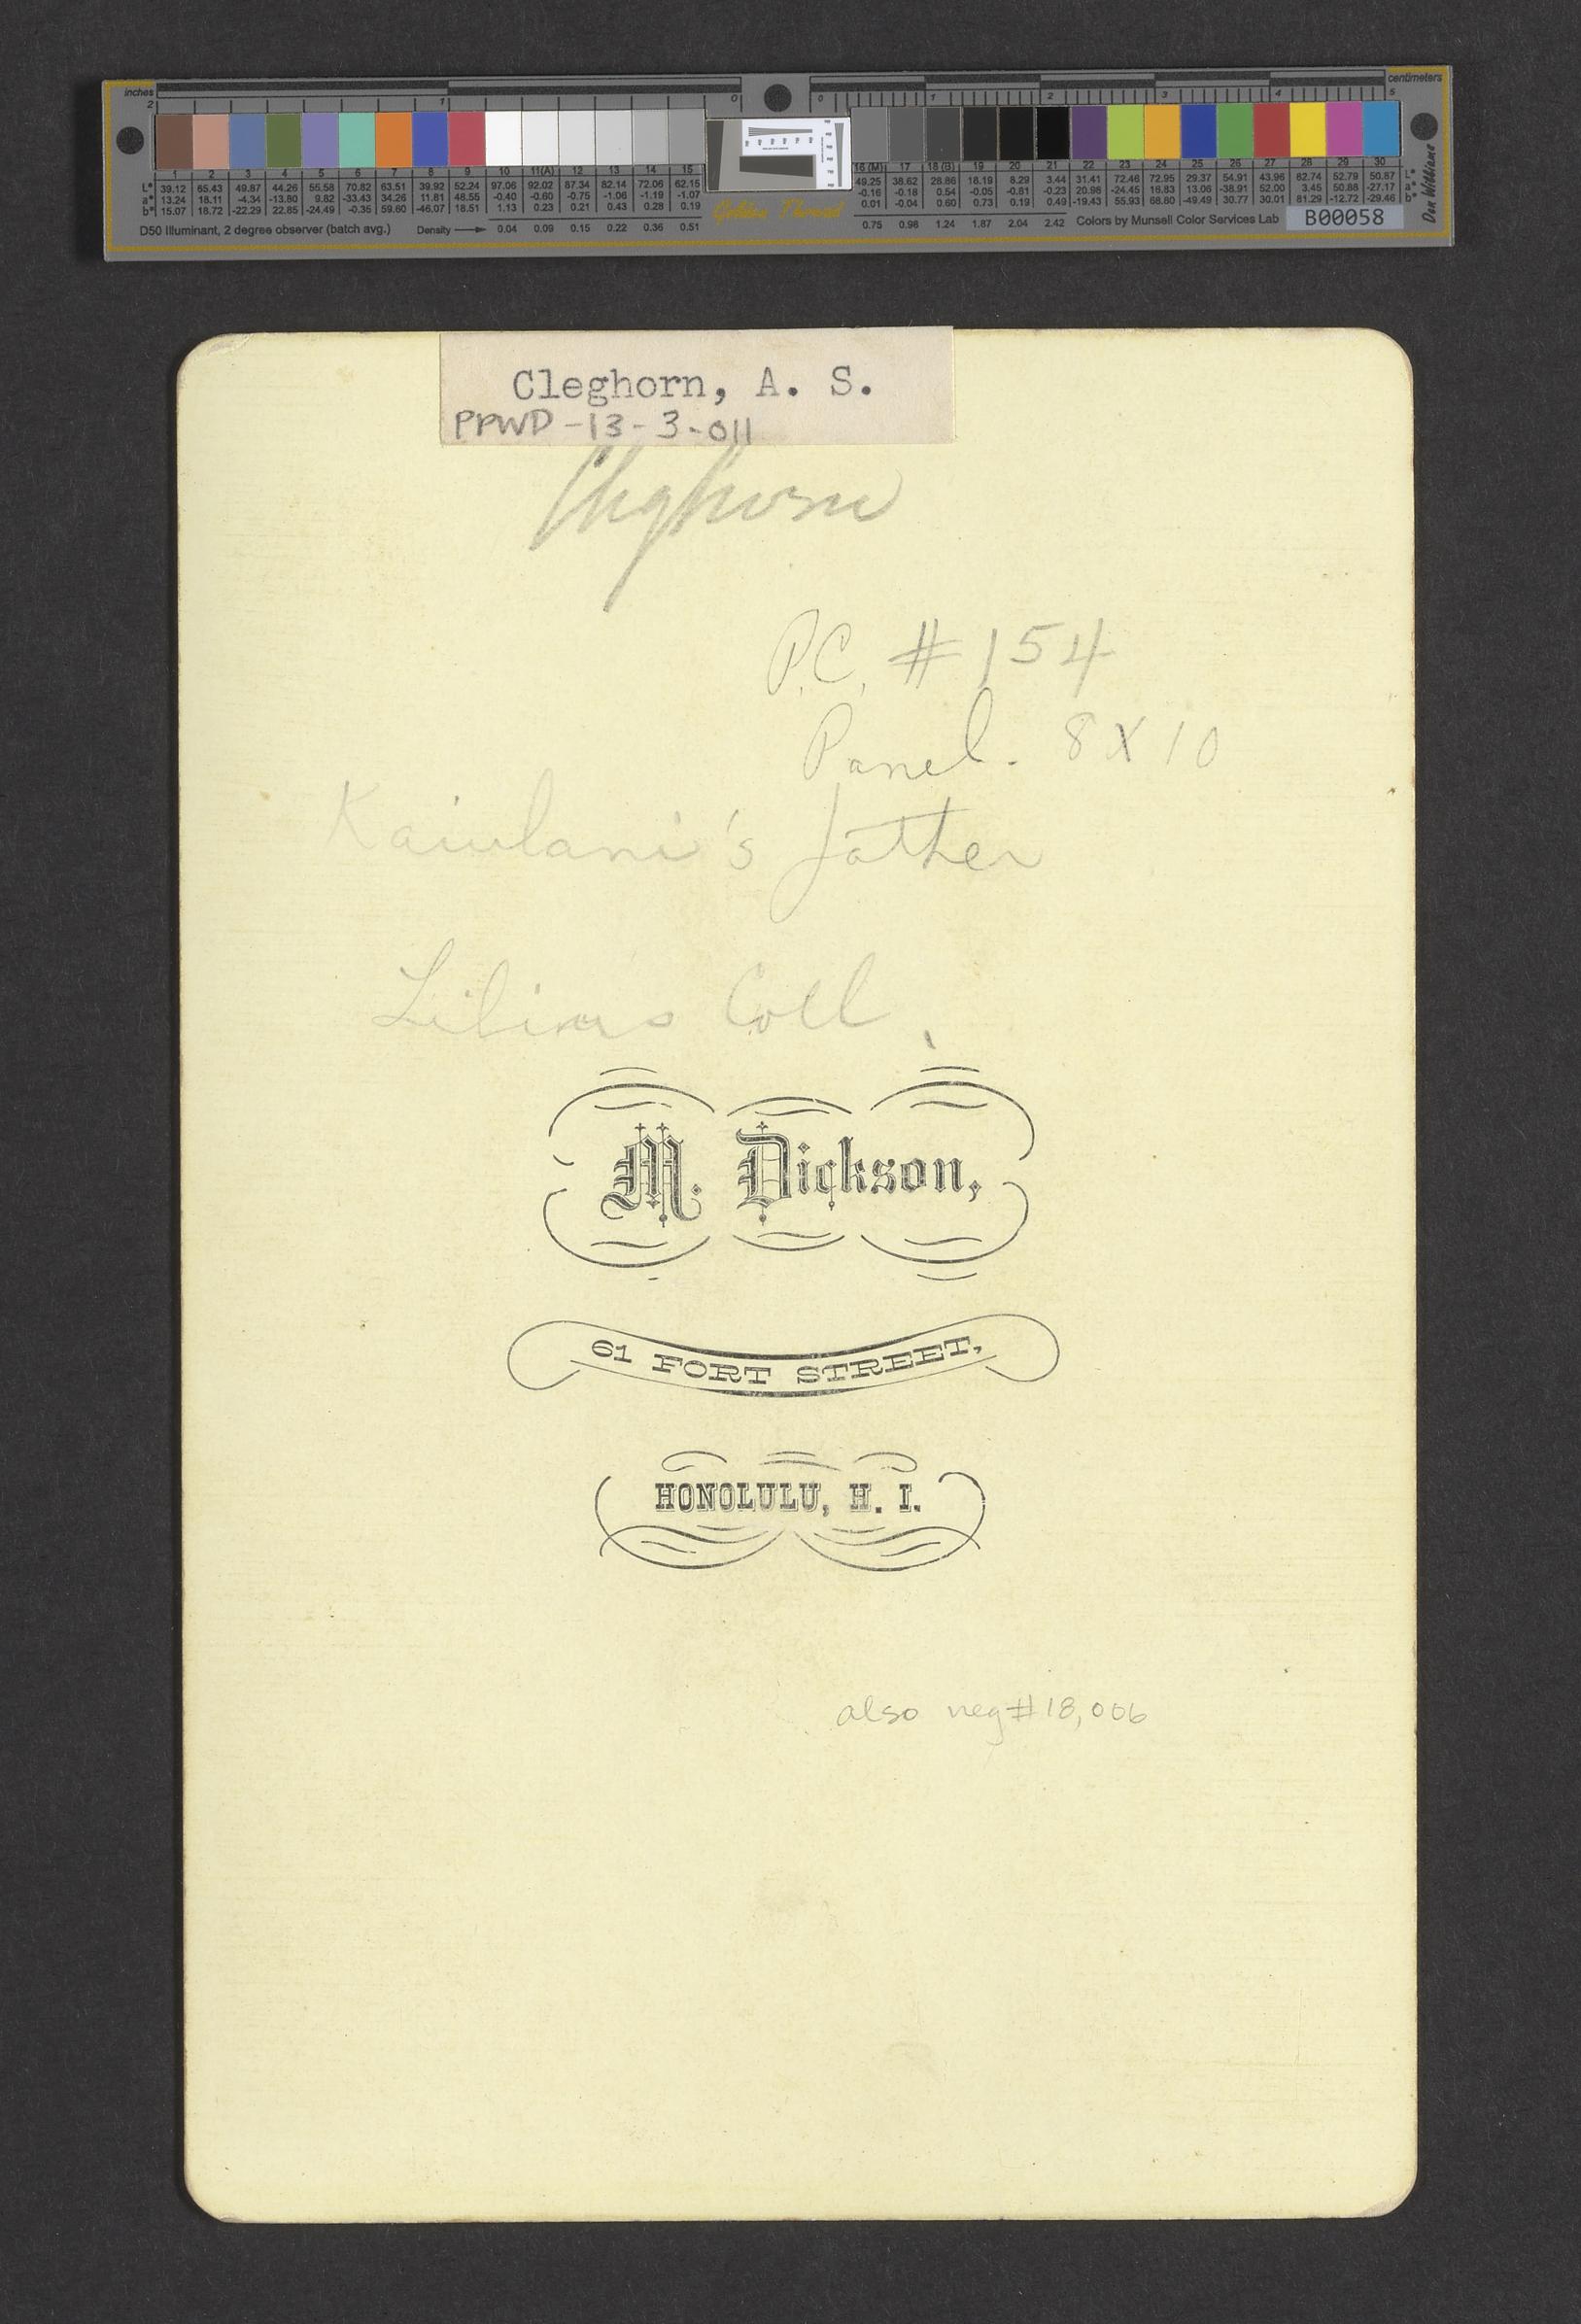 inches
centimeters
2 1 0 0 1 2 3 4 5
1 2 3 4 5 6 7 8 9 10 11(A) 12 13 14 15 16 (M) 17 18 (B) 19 20 21 22 23 24 25 26 27 28 29 30
L* 39.12 65.43 49.87 44.26 55.58 70.82 63.51 39.92 52.24 97.06 92.02 87.34 82.14 72.06 62.15 49.25 38.62 28.86 18.19 8.29 3.44 31.41 72.46 72.95 29.37 54.91 43.96 82.74 52.79 50.87 L*
a* 13.24 18.11 -4.34 -13.80 9.82 -33.43 34.26 11.81 48.55 -0.40 -0.60 -0.75 -1.06 -1.19 -1.07 -0.16 -0.18 0.54 -0.05 -0.81 -0.23 20.98 -24.45 16.83 13.06 -38.91 52.00 3.45 50.88 -27.17 a*
b* 15.07 18.72 -22.29 22.85 -24.49 -0.35 59.60 -46.07 18.51 1.13 0.23 0.21 0.43 0.28 0.19 0.01 -0.04 0.60 0.73 0.19 0.49 -19.43 55.93 68.80 -49.49 30.77 30.01 81.29 -12.72 -29.46 b*
D50 Illuminant, 2 degree observer (batch avg.) Density 0.04 0.09 0.15 0.22 0.36 0.51 Golden Thread 0.75 0.98 1.24 1.87 2.04 2.42 Colors by Munsell Color Services Lab B00058
Don Williams
Cleghorn, A. S.
PPWD-13-3-011
Cleghorn
P.C. #154
Panel. 8 X 10
Kaiulani's father
Coll.
M. Dickson,
61 FORT STREET,
HONOLULU, H. I.
also neg# 18,006